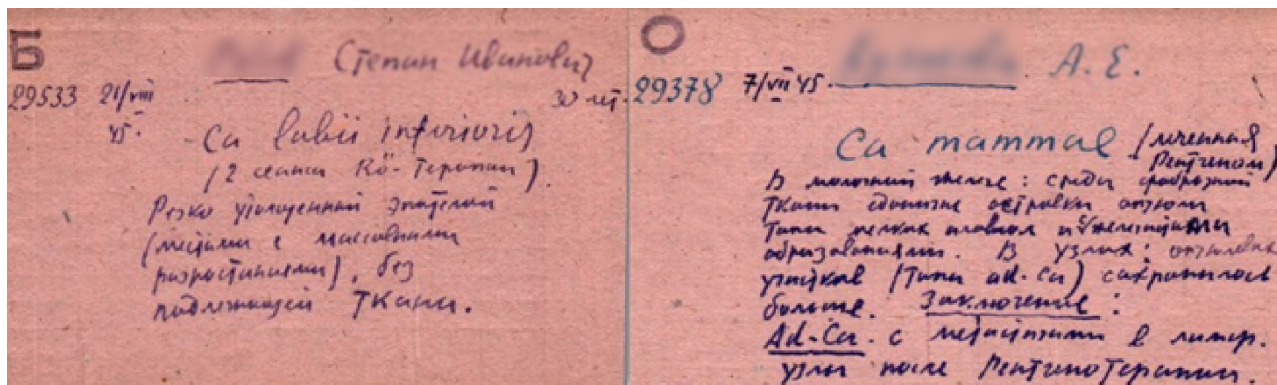 Б
Степан Иванович
29533 21/VIII
45.
30 лет.
Ca labii inferioris
(2 сеанса Rö-терапии).
Резко утолщенный эпителий
(местами с массивными
разрастаниями), без
подлежащей ткани.
О
А. Е.
29378 7/VII 45.
Ca mammae (леченная
Рентгеном)
В молочной железе: среди фиброзной
ткани единичные островки опухоли
типа мелких и железистыми
образованиями. В узлах: опухолевых
участков (типа ad-Ca) сохранилось
больше. Заключение:
Ad-Ca с метастазами в лимф.
узлы после Рентгенотерапии.